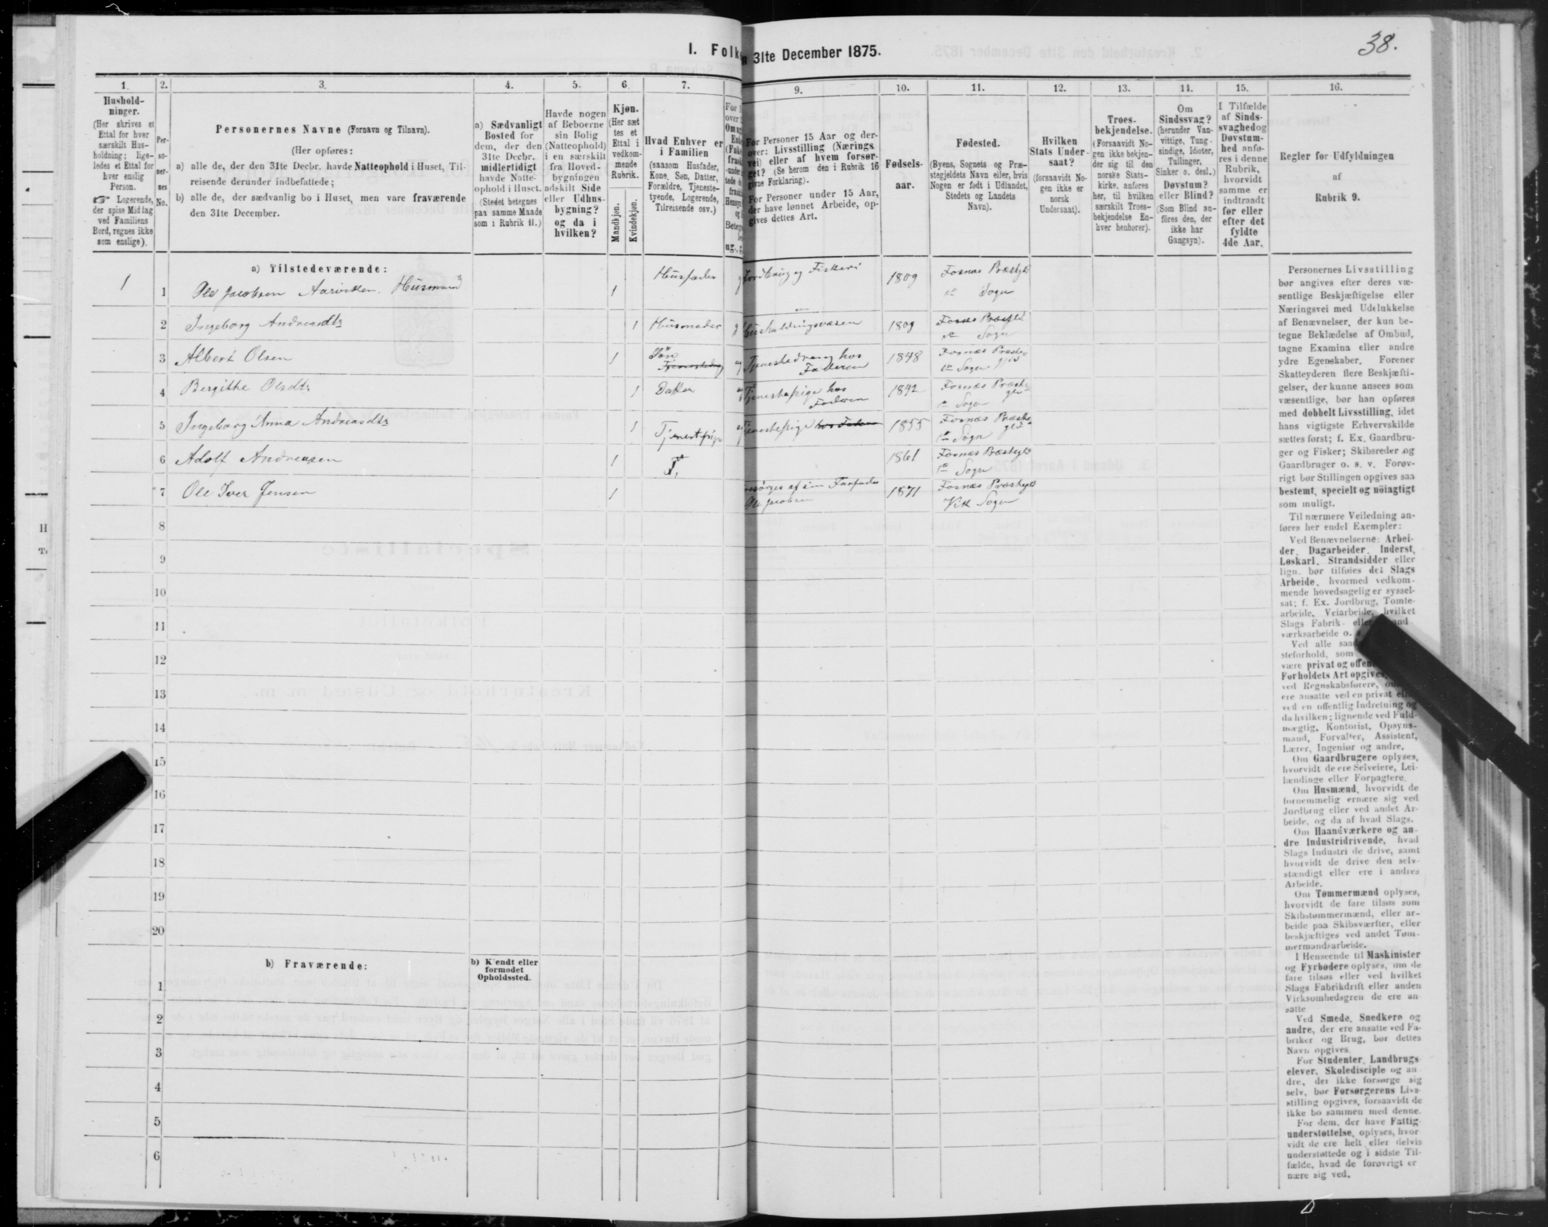 38.
I. Folk
31te December 1875.
1. 2. 3. 4. 5. 6. 7. 9. 10. 11. 12. 13. 14. 15. 16.
Hushold-
ninger.
(Her skrives et
Ettal for hver
særskilt Hus-
holdning; lige-
ledes et Ettal for
hver enslig
Person.
☞ Logerende,
der spise Middag
ved Familiens
Bord, regnes ikke
som enslige).
Per-
so-
ner-
nes
No.
Personernes Navne (Fornavn og Tilnavn).
(Her opføres:
a) alle de, der den 31te Decbr. havde Natteophold i Huset, Til-
reisende derunder indbefattede;
b) alle de, der sædvanlig bo i Huset, men vare fraværende
den 31te December.
a) Sædvanligt
Bosted for
dem, der den
31te Decbr.
midlertidigt
havde Natte-
ophold i Huset.
(Stedet betegnes
paa samme Maade
som i Rubrik 11.)
Havde nogen
af Beboerne
sin Bolig
(Natteophold)
i en særskilt
fra Hoved-
bygningen
adskilt Side
eller Udhus-
bygning?
og da i
hvilken?
Kjøn.
(Her sæt
tes et
Ettal i
vedkom-
mende
Rubrik.
Mandkjøn.
Kvindekjøn.
Hvad Enhver er
i Familien
(saasom Husfader,
Kone, Søn, Datter,
Forældre, Tjeneste-
tyende, Logerende,
Tilreisende osv.)
For Personer 15 Aar og der-
over: Livsstilling (Nærings
vei) eller af hvem forsør-
get? (Se herom den i Rubrik 16
givne Forklaring).
For Personer under 15 Aar,
der have lønnet Arbeide, op-
gives dettes Art.
Fødsels-
aar.
Fødested.
(Byens, Sognets og Præ-
stegjeldets Navn eller, hvis
Nogen er født i Udlandet,
Stedets og Landets
Navn).
Hvilken
Stats Under-
saat?
(forsaavidt No-
gen ikke er
norsk
Undersaat).
Troes-
bekjendelse.
(Forsaavidt No-
gen ikke bekjen-
der sig til den
norske Stats-
kirke, anføres
her, til hvilken
særskilt Troes-
bekjendelse En-
hver henhører).
Om
Sindssvag?
(herunder Van-
vittige, Tung-
sindige, Idioter,
Tullinger,
Sinker o. desl.)
Døvstum?
eller Blind?
(Som Blind an-
føres den, der
ikke har
Gangsyn).
I Tilfælde
af Sinds-
svaghed og
Døvstum-
hed anfø-
res i denne
Rubrik,
hvorvidt
samme er
indtraadt
før eller
efter det
fyldte
4de Aar.
Regler for Udfyldningen
af
Rubrik 9.
a) Tilstedeværende:
1 1 Ole Jacobsen Aarviken. Husmand 1 Husfader Jordbrug og Fiskeri 1809 Præstgl Sogn
2 Ingeborg Andreasdtr 1 Husmoder Husholdningsvæsen 1809 Sogn
3 Albert Olsen 1 Søn Tjenestedreng hos Faderen 1848 Sogn
4 Bergithe Olsdtr 1 Datter Tjenestepige hos Faderen 1842 Sogn
5 Ingeborg Anna Andreasdtr 1 Tjenestepige 1855 Sogn
6 Adolf Andreasen 1 1861 Sogn
7 Ole Iver Jensen 1 forsørges af sin Farfader Ole Jacobsen 1871 Sogn
8
9
10
11
12
13
14
15
16
17
18
19
20
b) Fraværende:
b) Kjendt eller
formodet
Opholdssted.
1
2
3
4
5
6
Personernes Livsstilling
bør angives efter deres væ-
sentlige Beskjæftigelse eller
Næringsvei med Udelukkelse
af Benævnelser, der kun be-
tegne Beklædelse af Ombud,
tagne Examina eller andre
ydre Egenskaber. Forener
Skatteyderen flere Beskjæfti-
gelser, der kunne ansees som
væsentlige, bør han opføres
med dobbelt Livsstilling, idet
hans vigtigste Erhvervskilde
sættes først; f. Ex. Gaardbru-
ger og Fisker; Skibsreder og
Gaardbruger o. s. v. Forøv-
rigt bør Stillingen opgives saa
bestemt, specielt og nøiagtigt
som muligt.
Til nærmere Veiledning an-
føres her endel Exempler:
Ved Benævnelserne: Arbei-
der, Dagarbeider, Inderst,
Løskarl, Strandsidder eller
lign. bør tilføies det Slags
Arbeide, hvormed vedkom-
mende hovedsagelig er syssel-
sat; f. Ex. Jordbrug, Tomte-
arbeide, Veiarbeide, hvilket
Slags Fabrik-
værksarbeide o.
Ved alle
steforhold, som
være privat og
Forholdets Art opgives,
ved Regnskabsførere,
ere ansatte ved en privat
ved en offentlig Indretning og
da hvilken; lignende ved Fuld-
mægtig, Kontorist, Opsyns-
mand, Forvalter, Assistent,
Lærer, Ingeniør og andre.
Om Gaardbrugere oplyses,
hvorvidt de ere Selveiere, Lei-
lændinge eller Forpagtere.
Om Husmænd, hvorvidt de
fornemmelig ernære sig ved
Jordbrug eller ved andet Ar-
beide, og da af hvad Slags.
Om Haandværkere og an-
dre Industridrivende, hvad
Slags Industri de drive, samt
hvorvidt de drive den selv-
stændigt eller ere i andres
Arbeide.
Om Tømmermænd oplyses,
hvorvidt de fare tilsøs som
Skibstømmermænd, eller ar-
beide paa Skibsværfter, eller
beskjæftiges ved andet Tøm-
mermandsarbeide.
I Henseende til Maskinister
og Fyrbødere oplyses, om de
fare tilsøs eller ved hvilket
Slags Fabrikdrift eller anden
Virksomhedsgren de ere an-
satte
Ved Smede, Snedkere og
andre, der ere ansatte ved Fa-
briker og Brug, bør dettes
Navn opgives.
For Studenter, Landbrugs
elever, Skoledisciple og an
dre, der ikke forsørge sig
selv, bør Forsørgerens Livs-
stilling opgives, forsaavidt de
ikke bo sammen med denne.
For dem, der have Fattig
understøttelse, oplyses, hvor
vidt de ere helt eller delvis
understøttede og i sidste Til-
fælde, hvad de forøvrigt er
nære sig ved.